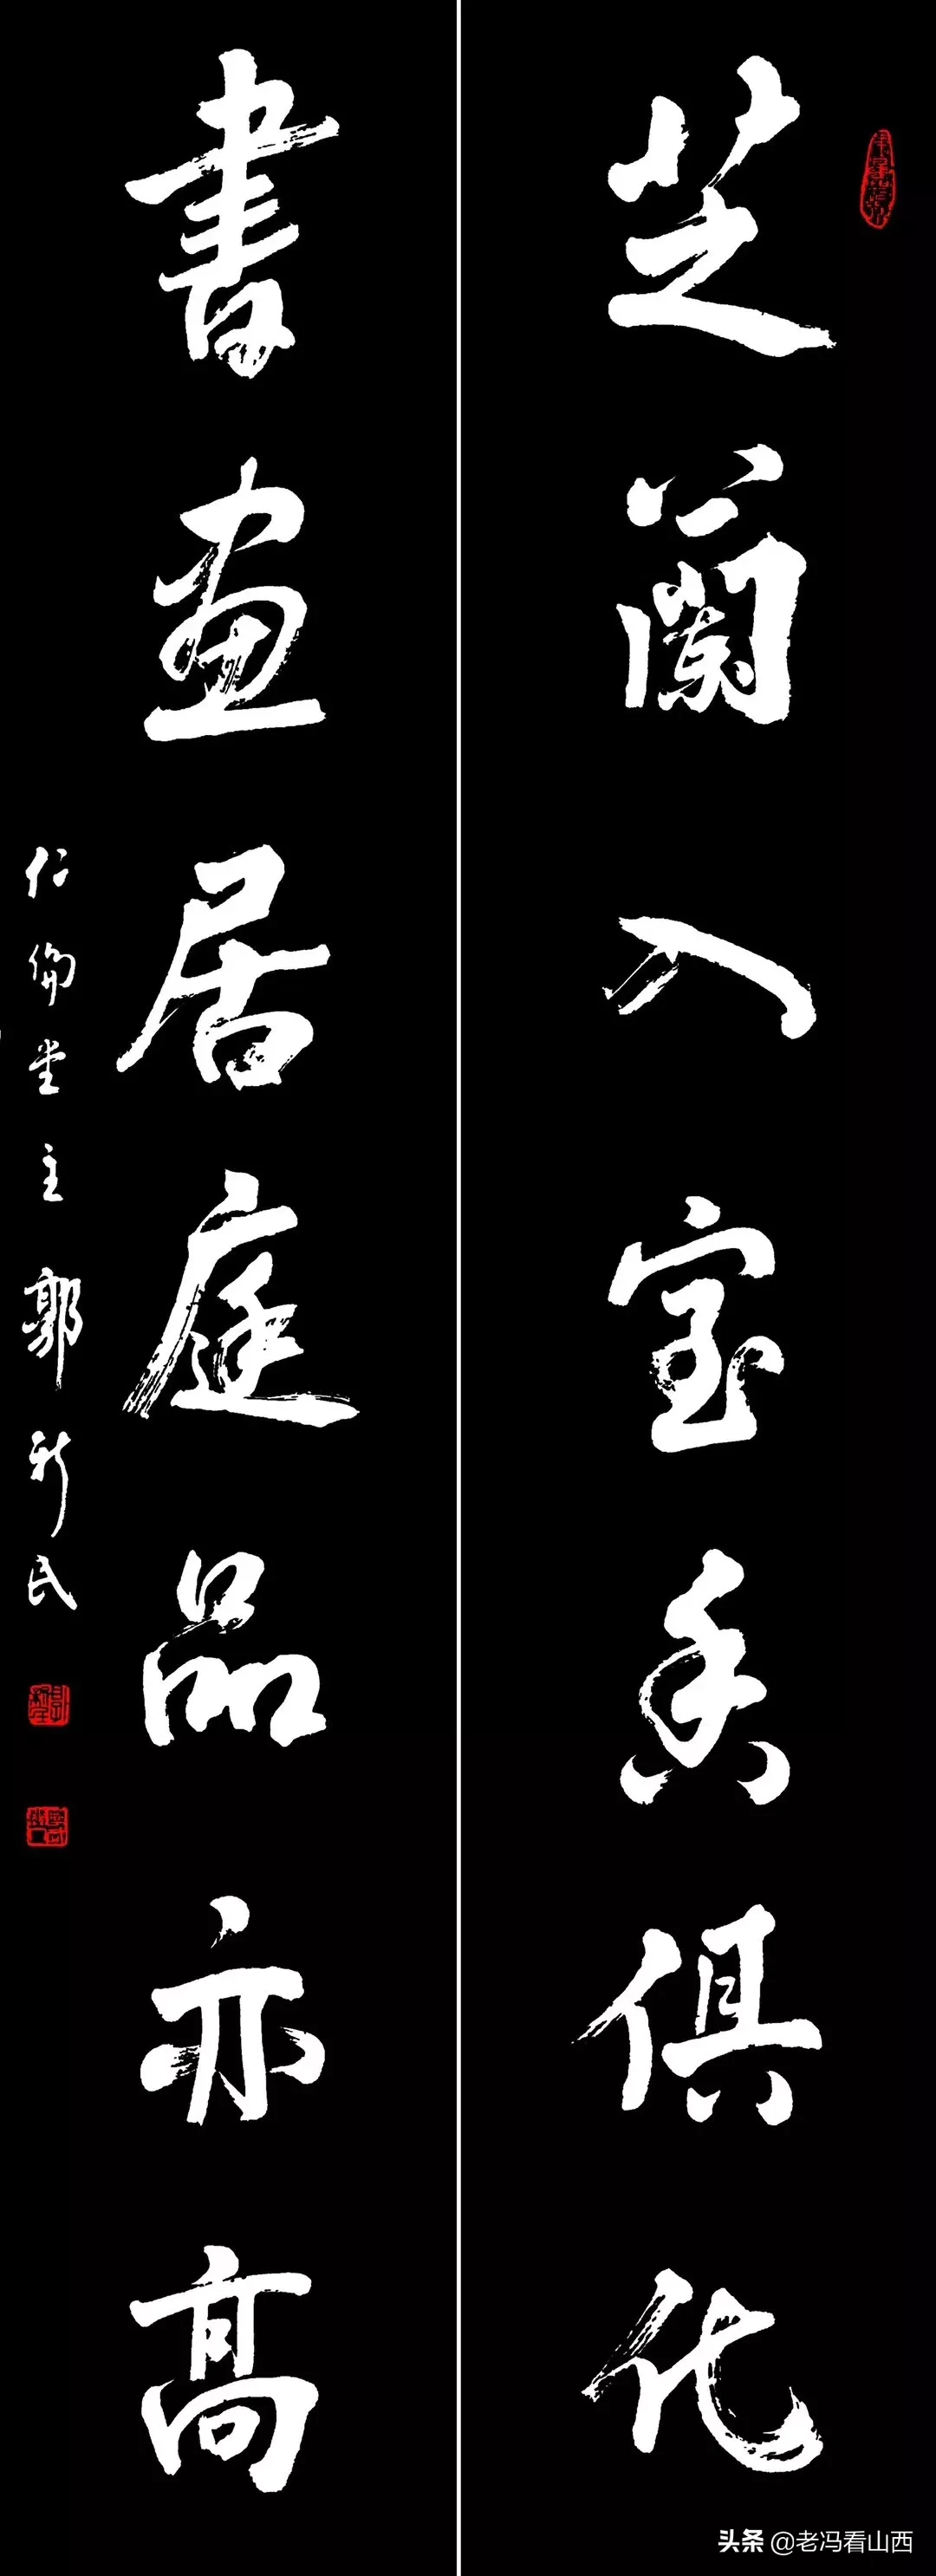 芝蘭入室香俱化
書畫居庭品亦高
仁倫堂主郭新民
头条 @老冯看山西